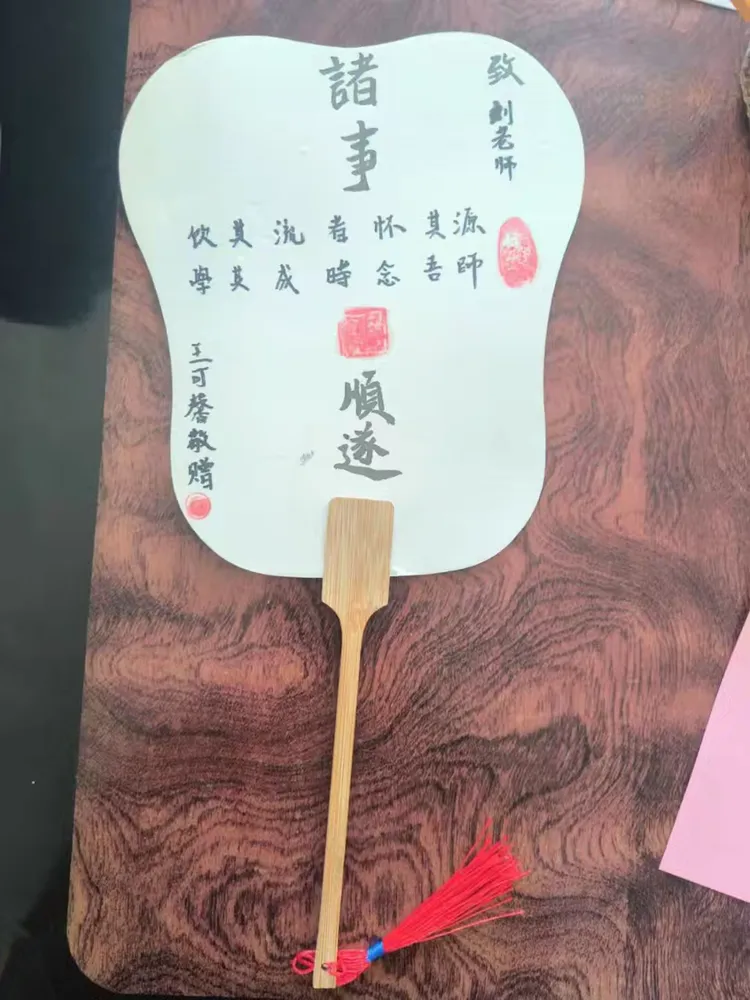 致
刘老师
諸事
饮其流者怀其源
學其成時念吾師
順遂
王可馨敬赠